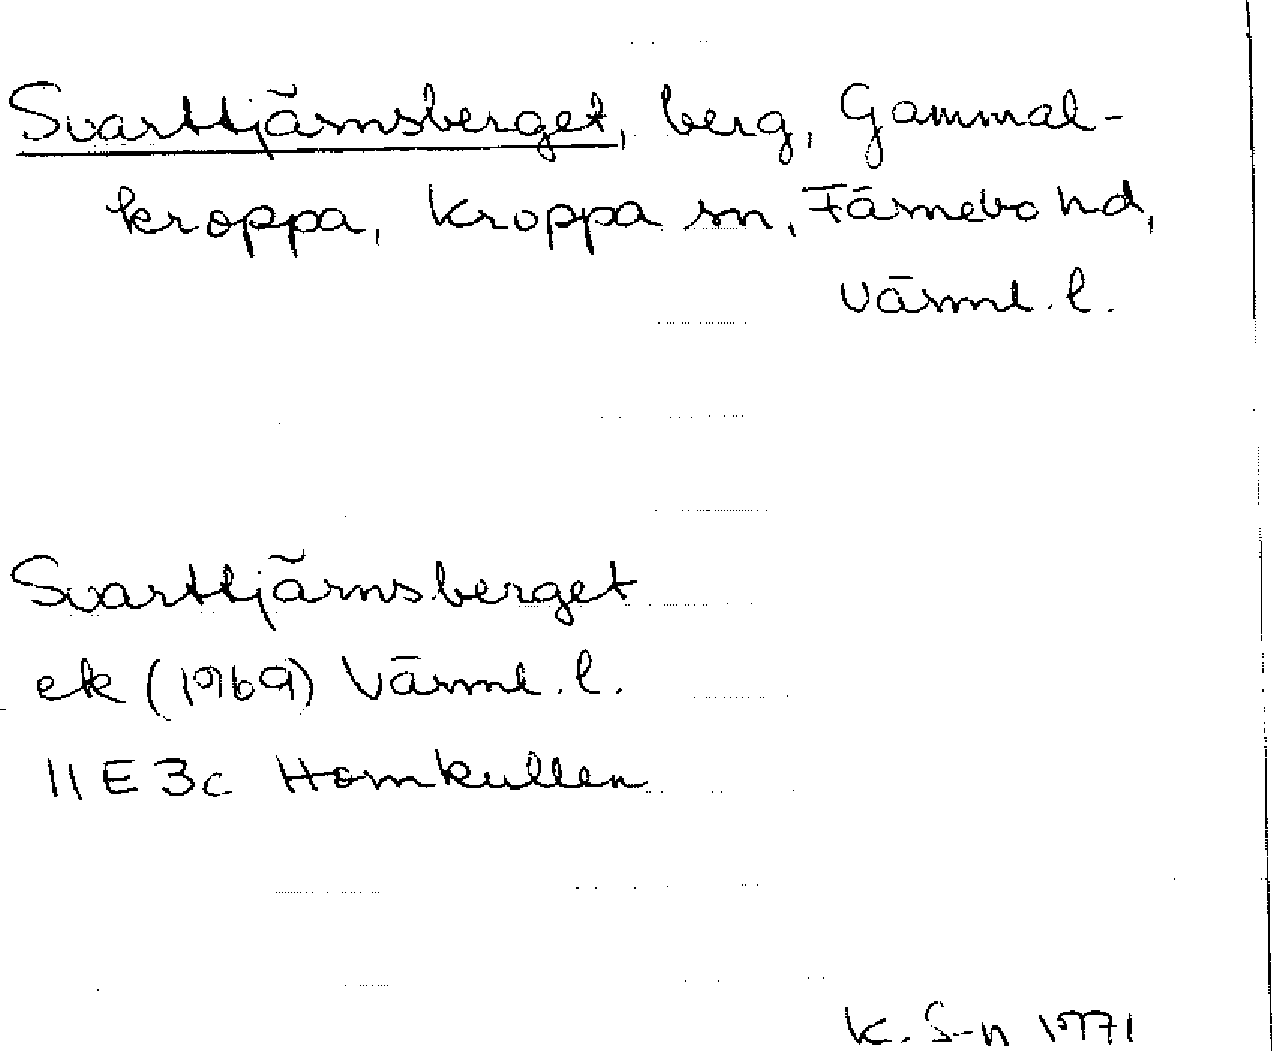 Svarttjärnsberget, berg, Gammal-
kroppa, Kroppa sn, Färnebo hd,
Värml. l.
Svarttjärnsberget
ek (1969) Värml. l.
11 E 3c Hornkullen
K. S-n 1971